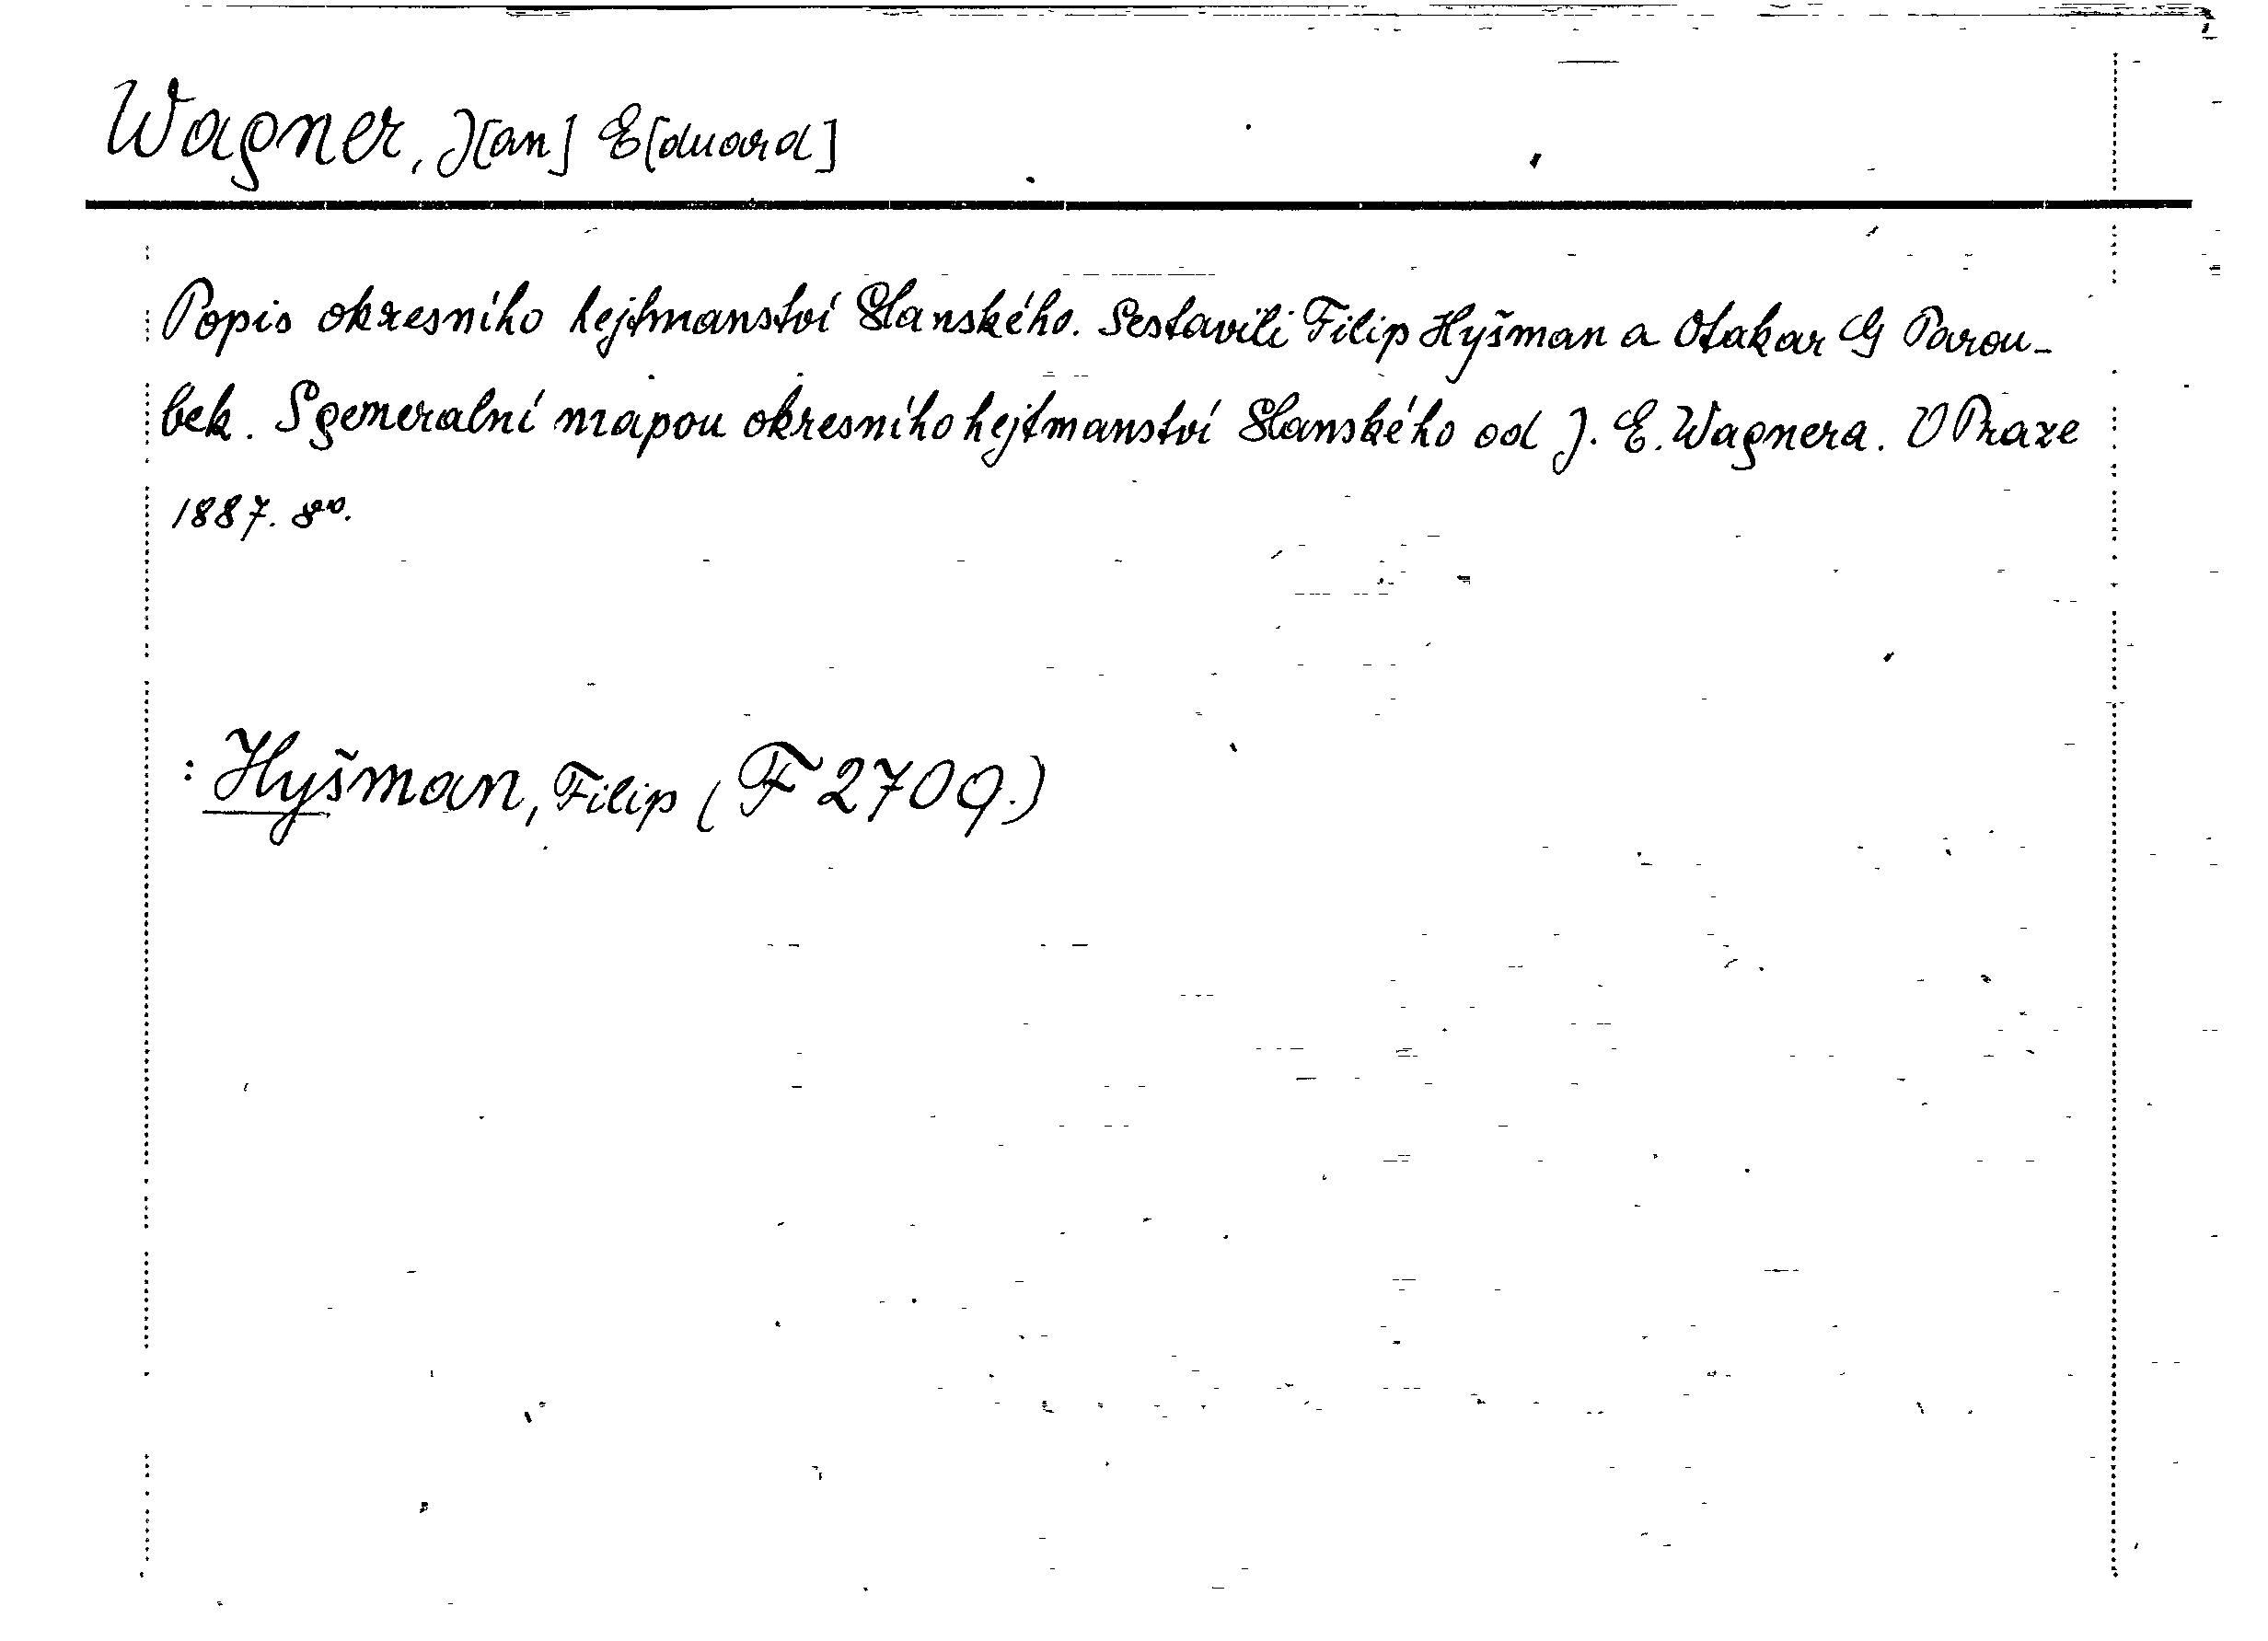 Wagner, J[an] E[duard]
Popis okresního hejtmanství Slanského. Sestavili Filip Hyšman a Otakar G Parou-
bek. S generalní mapou okresního hejtmanství Slanského od J. E. Wagnera. V Praze
1887. 8vo.
: Hyšman, Filip (F 2709.)